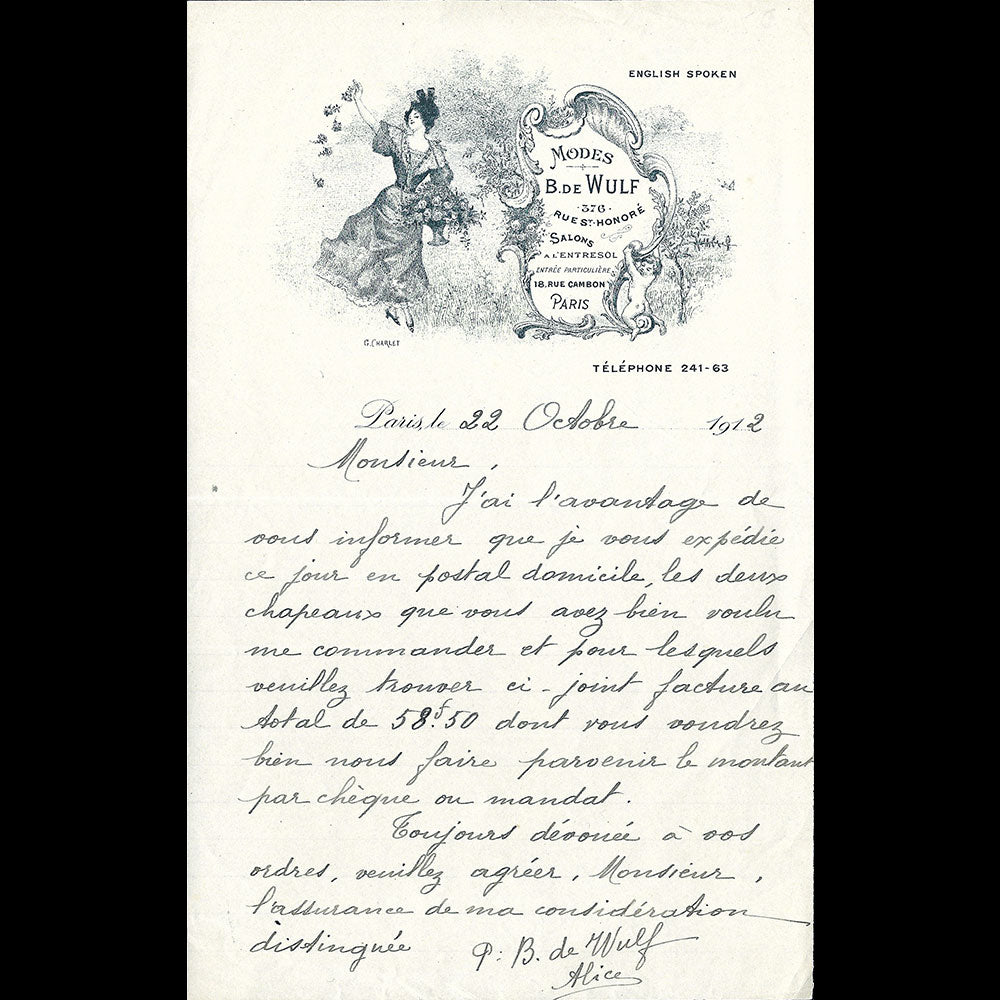 ENGLISH SPOKEN
MODES
B. DE WULF
·376·
RUE ST-HONORÉ
SALONS
A L'ENTRESOL
ENTRÉE PARTICULIÈRE
18, RUE CAMBON
PARIS
G. CHARLET
TÉLÉPHONE 241-63
Paris, le 22 Octobre 1912
Monsieur,
J'ai l'avantage de
vous informer que je vous expédie
ce jour en postal domicile, les deux
chapeaux que vous avez bien voulu
me commander et pour lesquels
veuillez trouver ci-joint facture au
total de 58f.50 dont vous voudrez
bien nous faire parvenir le montant
par chèque ou mandat.
Toujours dévouée à vos
ordres, veuillez agréer, Monsieur,
l'assurance de ma considération
distinguée
P: B. de Wulf
Alice